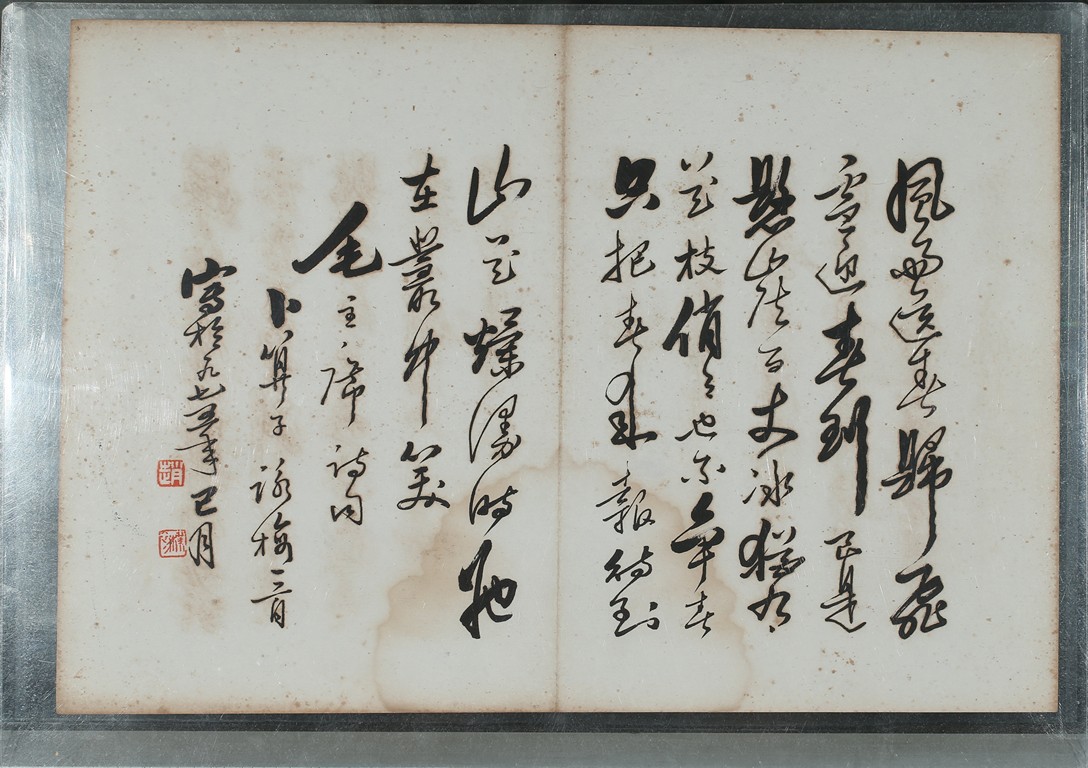 風雨送春歸飛
雪迎春到已是
懸崖百丈冰猶有
花枝俏〻也不爭春
只把春來報待到
山花爛漫時她
在叢中笑
毛主席詩詞
卜算子詠梅一首
寫於九七五年巳月
趙